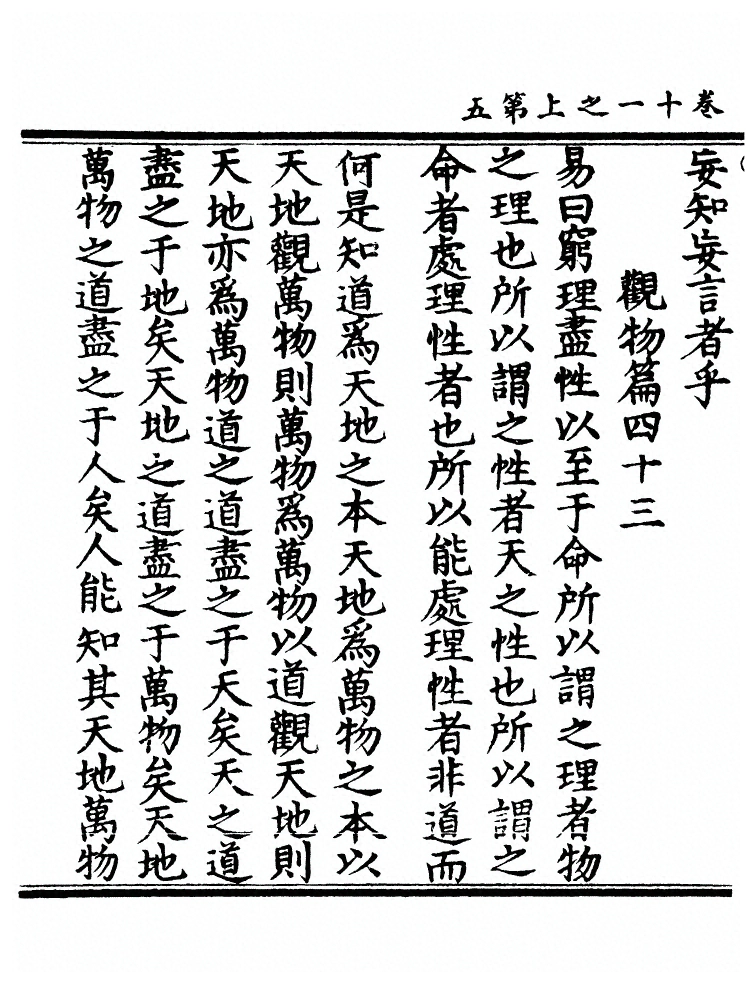 卷十一之上第五
妄知妄言者乎
觀物篇四十三
易曰窮理盡性以至于命所以謂之理者物
之理也所以謂之性者天之性也所以謂之
命者處理性者也所以能處理性者非道而
何是知道爲天地之本天地爲萬物之本以
天地觀萬物則萬物爲萬物以道觀天地則
天地亦爲萬物道之道盡之于天矣天之道
盡之于地矣天地之道盡之于萬物矣天地
萬物之道盡之于人矣人能知其天地萬物